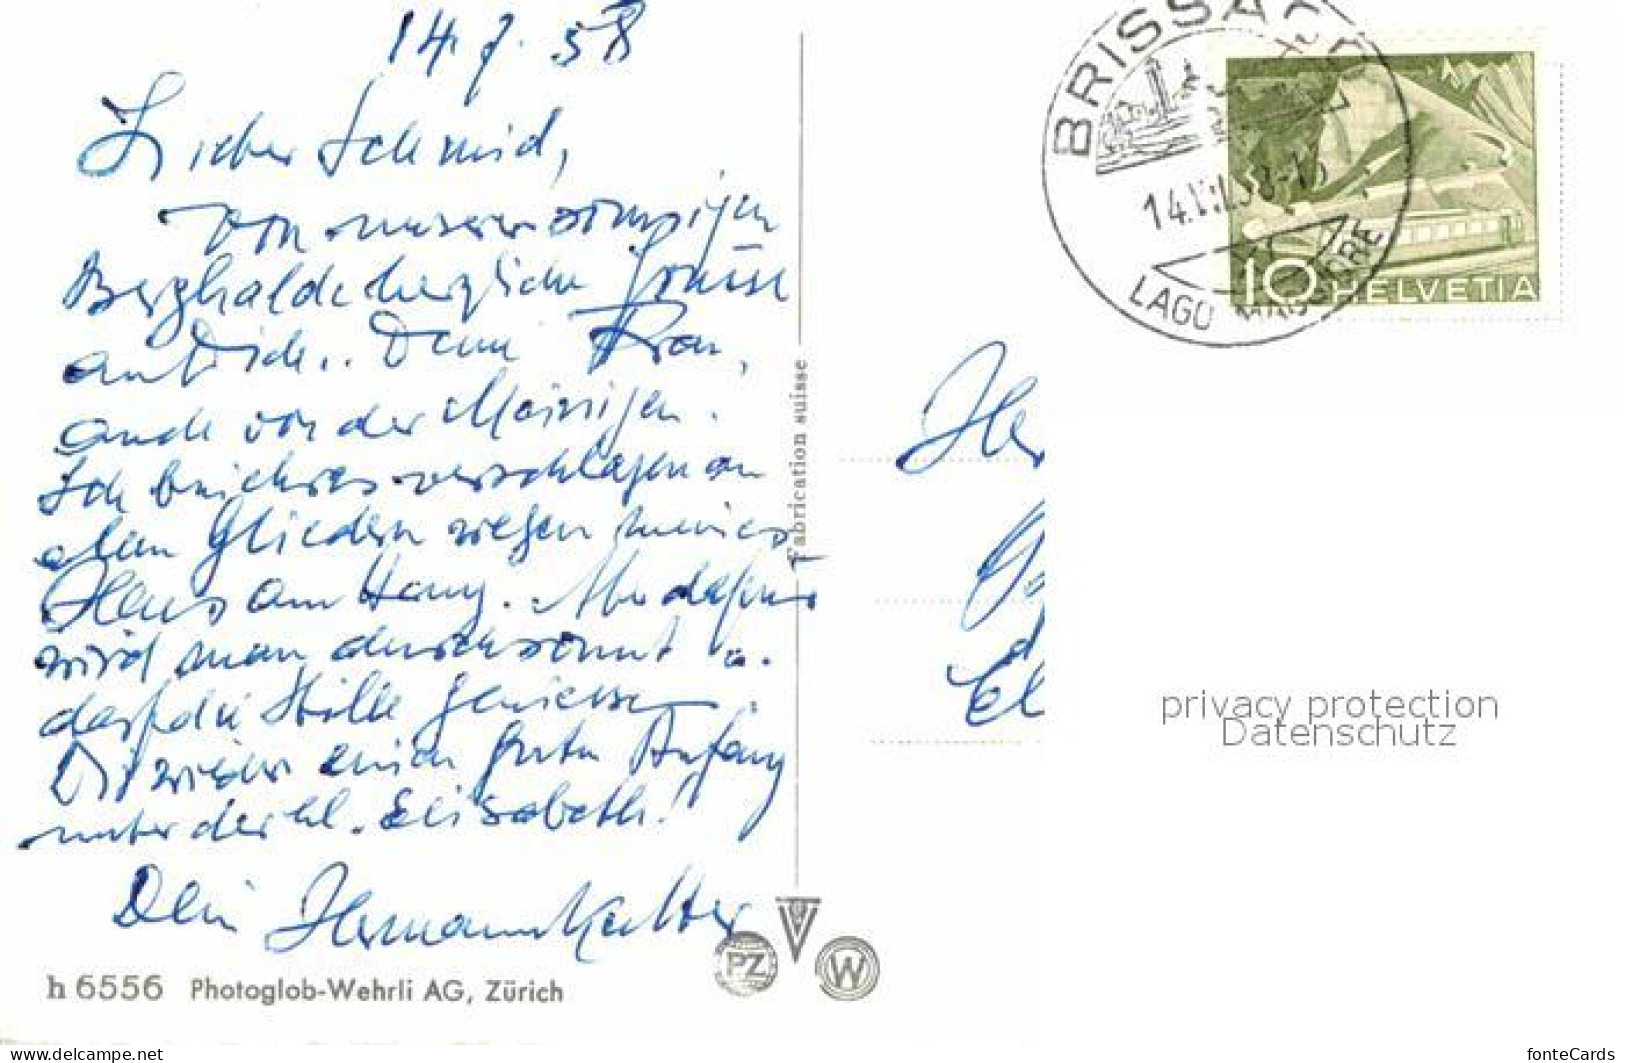 14. 7. 58
Lieber Schmid,
von unserer sonnigen
Berghalde herzliche Grüsse
an Dich. Deine Frau,
auch von der Meinigen.
Ich bin
allen Gliedern wegen meines
Haus am Hang. Aber dafür
wird man durchsonnt u.
darf die Stille geniessen.
Dir wieder einen guten Anfang
unter der hl. Elisabeth!
Dein Hermann
h 6556 Photoglob-Wehrli AG, Zürich
PZ
W
Fabrication suisse
BRISSAGO
14.VII.58-15
LAGO MAGGIORE
10 HELVETIA
Her
El
privacy protection
Datenschutz
delcampe.net
fonteCards